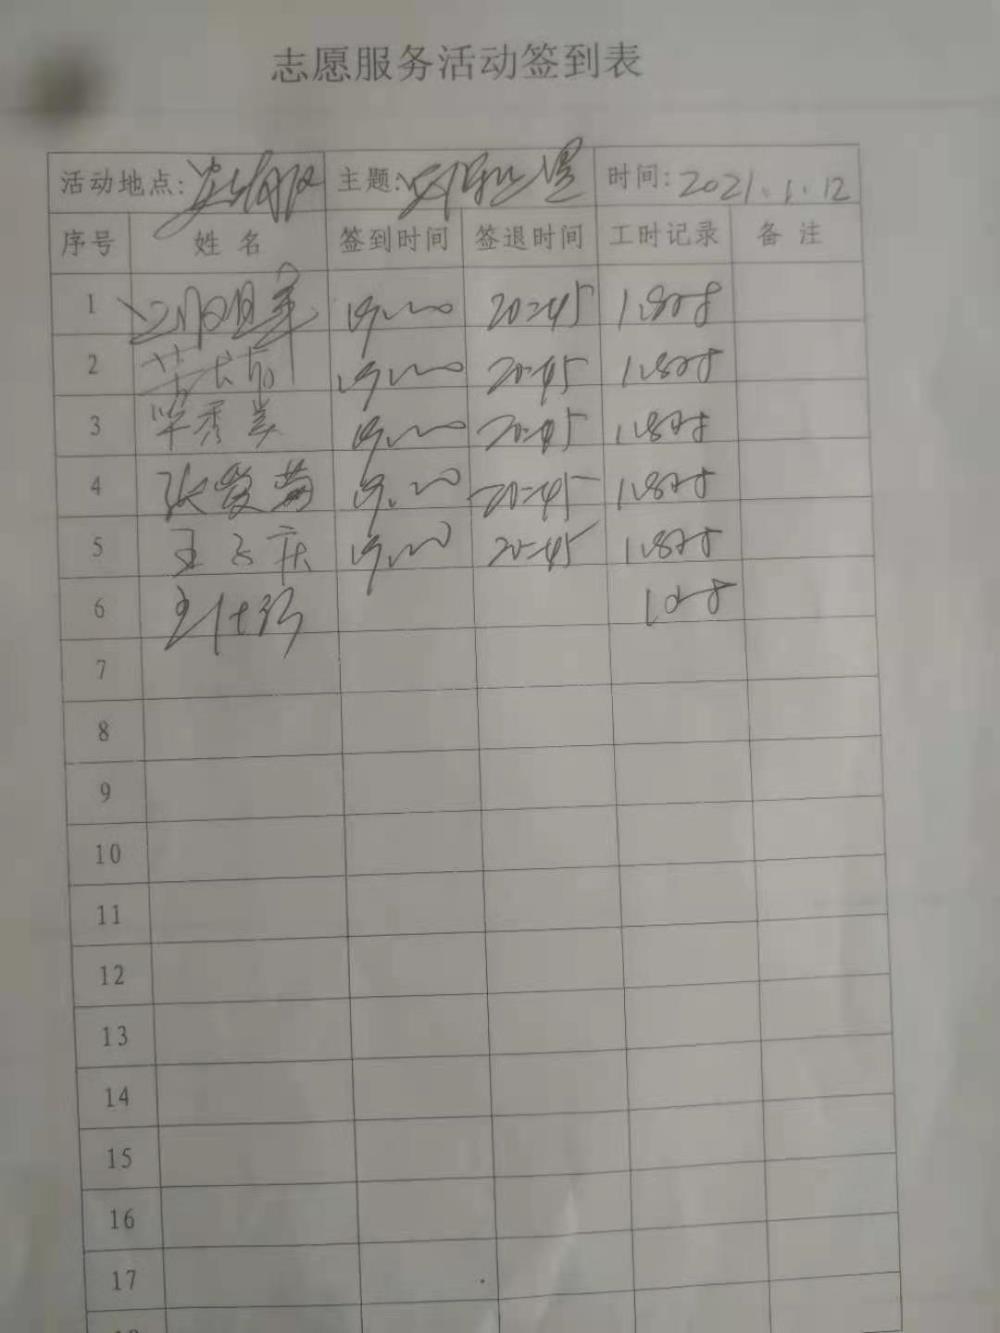 志愿服务活动签到表
活动地点: 主题: 时间: 2021.1.12
序号 姓名 签到时间 签退时间 工时记录 备注
1 19:00 20:45 1.8时
2 19:00 20:45 1.8时
3 毕秀美 19:00 20:45 1.8时
4 张爱菊 19:00 20:45 1.8时
5 王飞庆 19:00 20:45 1.8时
6 1时
7
8
9
10
11
12
13
14
15
16
17